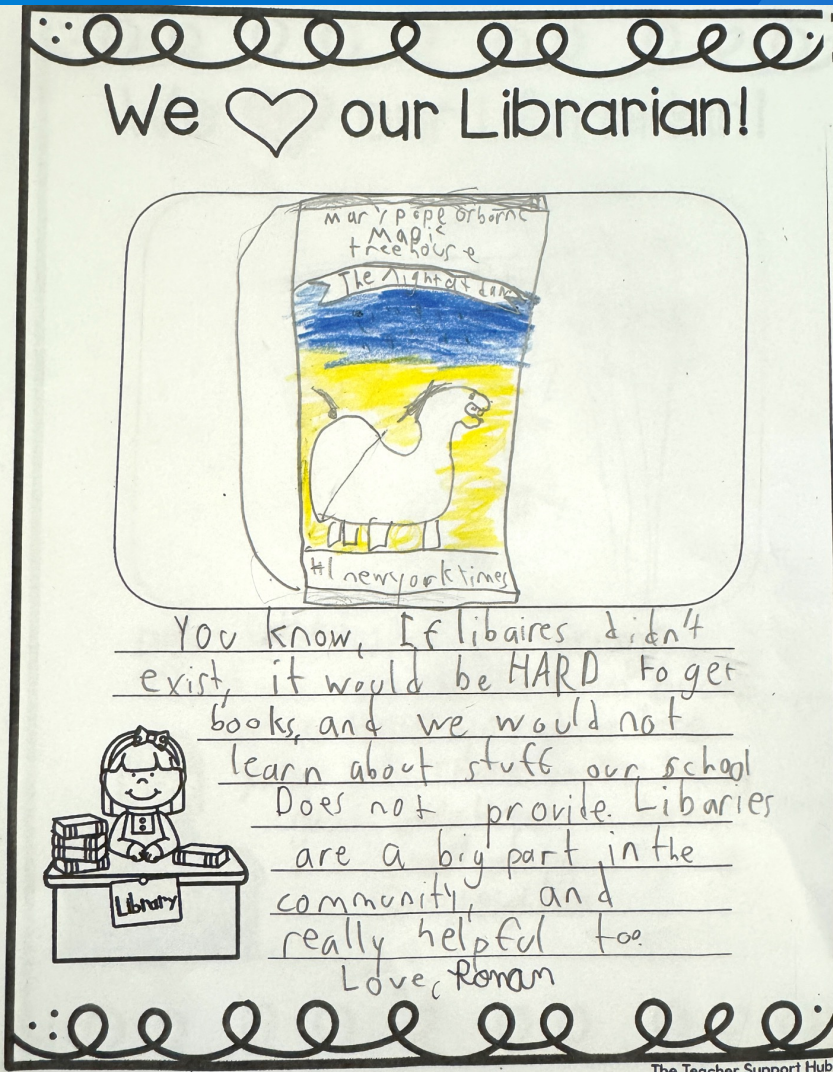 We our Librarian!
Mary pope Osborne
Magic
tree house
The Night at dawn
#1 newyork times
You know, If libaires didn't
exist, it would be HARD to get
books, and we would not
learn about stuff our school
Does not provide. Libaries
are a big part in the
community, and
really helpful too
Love, Ronan
Library
The Teacher Support Hub